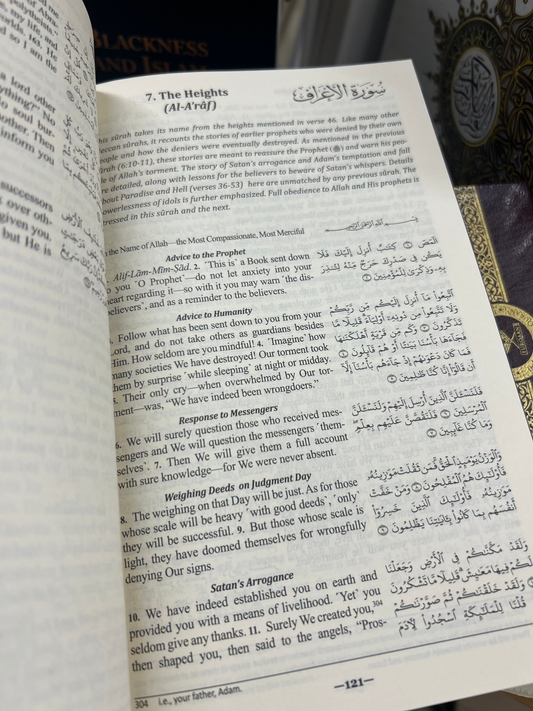 LACKNESS
ND ISLAM
any life, and
so I am the
a lord other
everything? No
no soul bur-
another. Then
inform you
successors
over oth-
given you.
but He is
7. The Heights
(Al-A'râf)
سُورَةُ الْأَعْرَاف
This sûrah takes its name from the heights mentioned in verse 46. Like many other
Meccan sûrahs, it recounts the stories of earlier prophets who were denied by their own
people and how the deniers were eventually destroyed. As mentioned in the previous
sûrah (6:10-11), these stories are meant to reassure the Prophet (ﷺ) and warn his peo-
ple of Allah's torment. The story of Satan's arrogance and Adam's temptation and fall
are detailed, along with lessons for the believers to beware of Satan's whispers. Details
about Paradise and Hell (verses 36-53) here are unmatched by any previous sûrah. The
powerlessness of idols is further emphasized. Full obedience to Allah and His prophets is
stressed in this sûrah and the next.
the Name of Allah—the Most Compassionate, Most Merciful
بِسْمِ اللَّهِ الرَّحْمَٰنِ الرَّحِيمِ
Advice to the Prophet
Alif-Lãm-Mĩm-Ṣãd. 2. ˹This is˺ a Book sent down
to you ˹O Prophet˺—do not let anxiety into your
heart regarding it—so with it you may warn ˹the dis-
believers˺, and as a reminder to the believers.
Advice to Humanity
Follow what has been sent down to you from your
Lord, and do not take others as guardians besides
Him. How seldom are you mindful! 4. ˹Imagine˺ how
many societies We have destroyed! Our torment took
them by surprise ˹while sleeping˺ at night or midday.
5. Their only cry—when overwhelmed by Our tor-
ment—was, “We have indeed been wrongdoers.”
Response to Messengers
6. We will surely question those who received mes-
sengers and We will question the messengers ˹them-
selves˺. 7. Then We will give them a full account
with sure knowledge—for We were never absent.
Weighing Deeds on Judgment Day
8. The weighing on that Day will be just. As for those
whose scale will be heavy ˹with good deeds˺, ˹only˺
they will be successful. 9. But those whose scale is
light, they have doomed themselves for wrongfully
denying Our signs.
Satan's Arrogance
10. We have indeed established you on earth and
provided you with a means of livelihood. ˹Yet˺ you
seldom give any thanks. 11. Surely We created you,304
then shaped you, then said to the angels, “Pros-
الٓمٓصٓ ١ كِتَٰبٌ أُنزِلَ إِلَيْكَ فَلَا
يَكُن فِى صَدْرِكَ حَرَجٌ مِّنْهُ لِتُنذِرَ
بِهِۦ وَذِكْرَىٰ لِلْمُؤْمِنِينَ ٢
ٱتَّبِعُوا۟ مَآ أُنزِلَ إِلَيْكُم مِّن رَّبِّكُمْ
وَلَا تَتَّبِعُوا۟ مِن دُونِهِۦٓ أَوْلِيَآءَ ۗ قَلِيلًا مَّا
تَذَكَّرُونَ ٣ وَكَم مِّن قَرْيَةٍ أَهْلَكْنَٰهَا
فَجَآءَهَا بَأْسُنَا بَيَٰتًا أَوْ هُمْ قَآئِلُونَ ٤
فَمَا كَانَ دَعْوَىٰهُمْ إِذْ جَآءَهُم بَأْسُنَآ إِلَّآ
أَن قَالُوٓا۟ إِنَّا كُنَّا ظَٰلِمِينَ ٥
فَلَنَسْـَٔلَنَّ ٱلَّذِينَ أُرْسِلَ إِلَيْهِمْ وَلَنَسْـَٔلَنَّ
ٱلْمُرْسَلِينَ ٦ فَلَنَقُصَّنَّ عَلَيْهِم بِعِلْمٍ ۖ
وَمَا كُنَّا غَآئِبِينَ ٧
وَٱلْوَزْنُ يَوْمَئِذٍ ٱلْحَقُّ ۚ فَمَن ثَقُلَتْ مَوَٰزِينُهُۥ
فَأُو۟لَٰٓئِكَ هُمُ ٱلْمُفْلِحُونَ ٨ وَمَنْ خَفَّتْ
مَوَٰزِينُهُۥ فَأُو۟لَٰٓئِكَ ٱلَّذِينَ خَسِرُوٓا۟
أَنفُسَهُم بِمَا كَانُوا۟ بِـَٔايَٰتِنَا يَظْلِمُونَ ٩
وَلَقَدْ مَكَّنَّٰكُمْ فِى ٱلْأَرْضِ وَجَعَلْنَا
لَكُمْ فِيهَا مَعَٰيِشَ ۗ قَلِيلًا مَّا تَشْكُرُونَ
١٠ وَلَقَدْ خَلَقْنَٰكُمْ ثُمَّ صَوَّرْنَٰكُمْ ثُمَّ
قُلْنَا لِلْمَلَٰٓئِكَةِ ٱسْجُدُوا۟ لِـَٔادَمَ
304 i.e., your father, Adam.
—121—